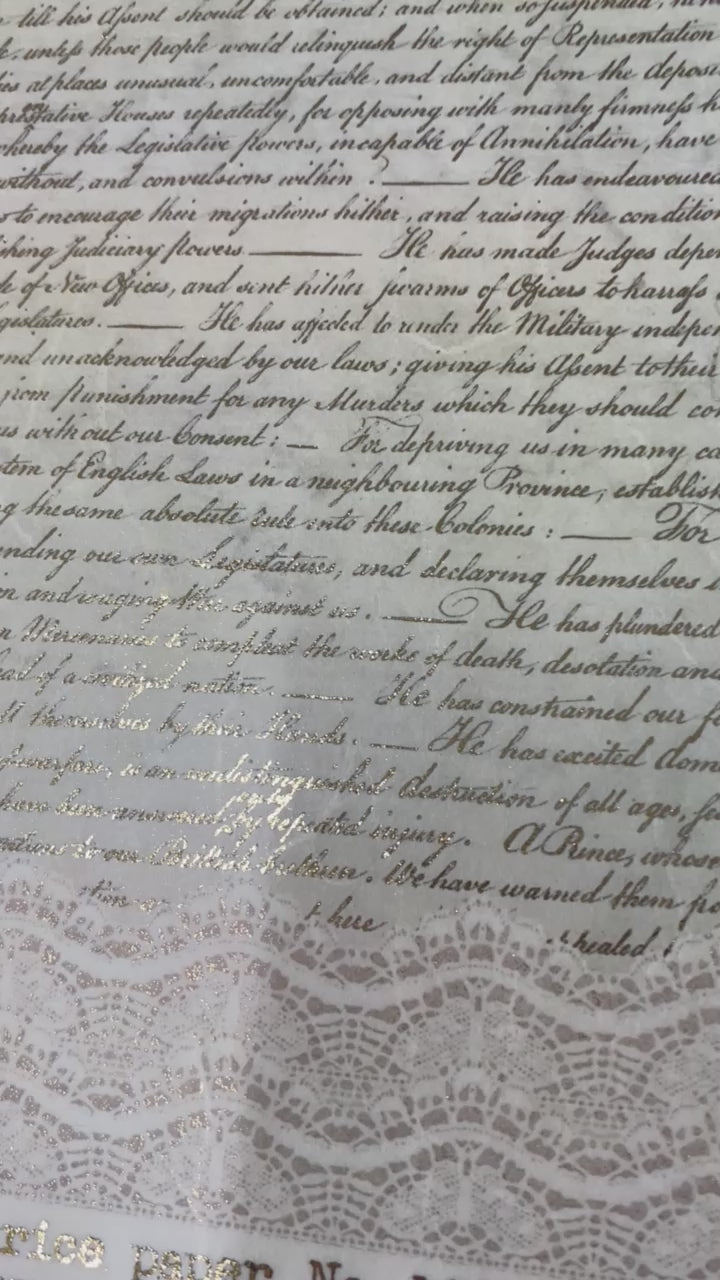 till his Assent should be obtained; and when so suspended,
unless those people would relinquish the right of Representation
at places unusual, uncomfortable, and distant from the deposi
Houses repeatedly, for opposing with manly firmness h
whereby the Legislative powers, incapable of Annihilation, have
without, and convulsions within. —— He has endeavoured
to encourage their migrations hither, and raising the condition
shing Judiciary powers —— He has made Judges depen
of New Offices, and sent hither swarms of Officers to harrass
gislatures. —— He has affected to render the Military indepen
and unacknowledged by our laws; giving his Assent to their
from punishment for any Murders which they should co
us without our Consent: — For depriving us in many ca
stem of English Laws in a neighbouring Province, establish
g the same absolute rule into these Colonies: —— For
ending our own Legislatures, and declaring themselves
n and waging War against us. —— He has plundered
n Mercenaries to compleat the works of death, desolation and
ead of a civilized nation. —— He has constrained our f
themselves by their Hands. — He has excited dom
warfare, is an undistinguished destruction of all ages, se
have been answered only by repeated injury. A Prince, whose
to our British brethren. We have warned them fro
here
rice paper